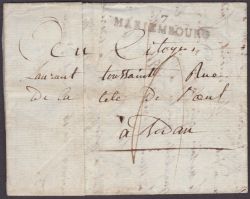 7
MARIEMBOURG
Au Citoyen
Laurant toussaint Rue
de la tete de
à Sedan